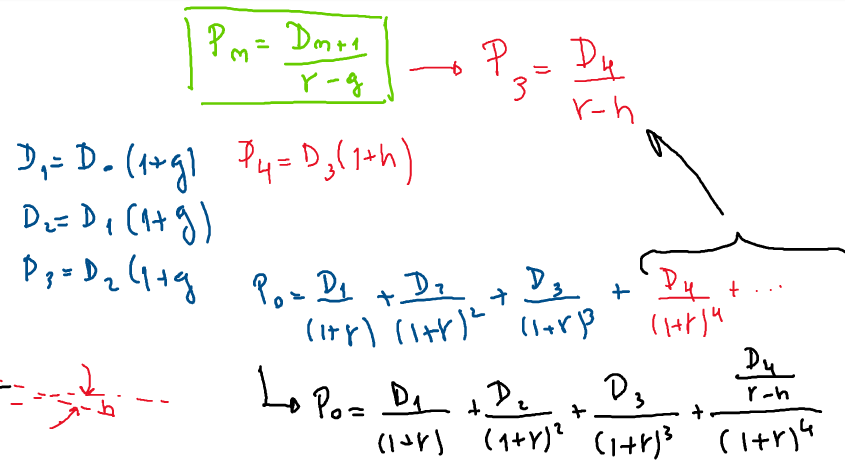 P_m = D_{m+1}/(r-g) → P_3 = D_4/(r-h)
D_1 = D_0 (1+g)
D_4 = D_3(1+h)
D_2 = D_1 (1+g)
D_3 = D_2 (1+g
P_0 = D_1/(1+r) + D_2/(1+r)^2 + D_3/(1+r)^3 + D_4/(1+r)^4 + ...
h
↳ P_0 = D_1/(1+r) + D_2/(1+r)^2 + D_3/(1+r)^3 + (D_4/(r-h))/(1+r)^4